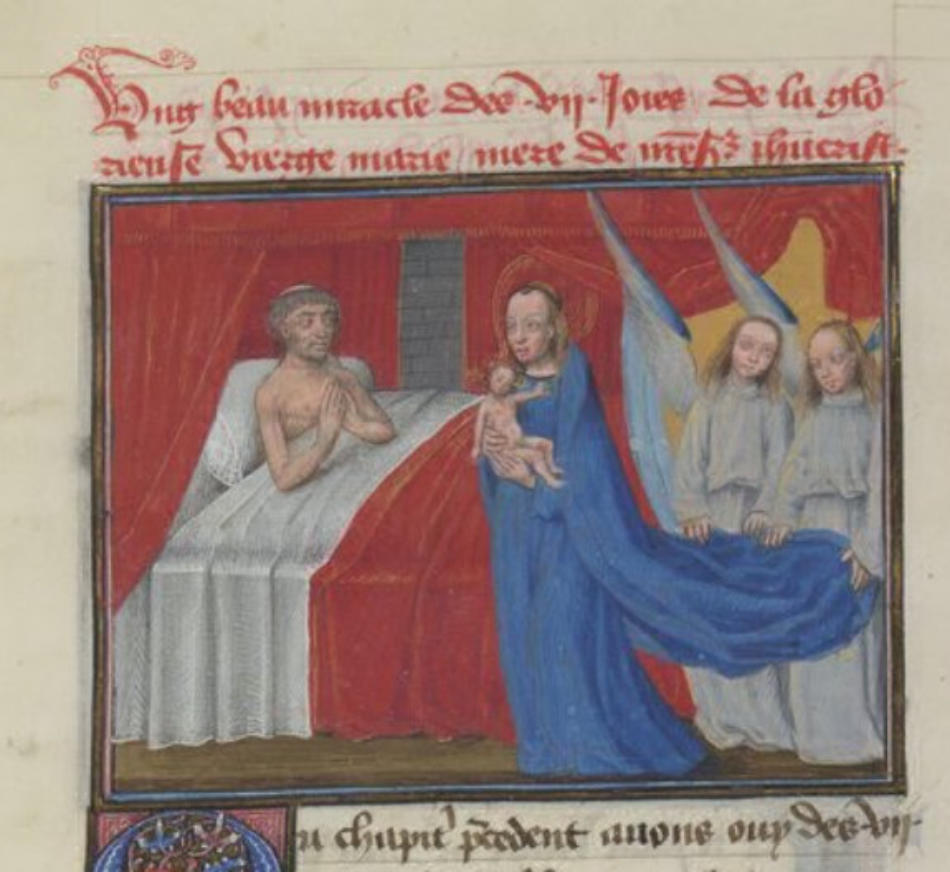 Vng beau miracle des ·vij· Ioies de la glo
rieuse vierge marie mere de mess̃ ihũcrist·
u chapit̃ p̃cedent auons ouy des ·vij·